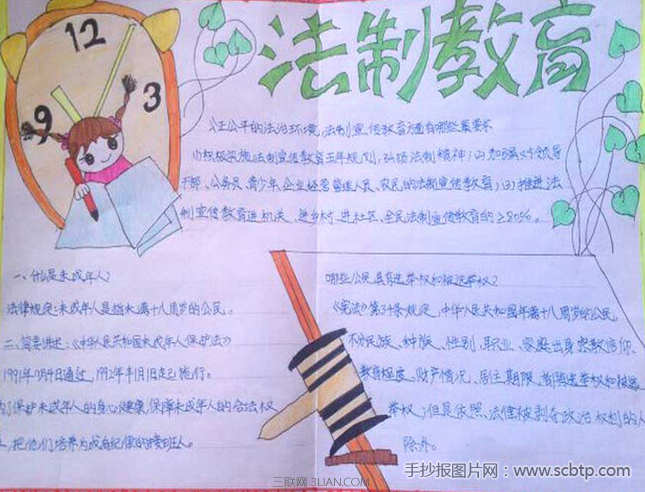 12
9
3
法制教育
公正公平的法治环境,法制宣传教育方面有哪些具要求
(1)积极实施法制宣传教育五年规划,弘扬法制精神;(2)加强对领导
干部、公务员、青少年、企业经营管理人员、农民的法制宣传教育;(3)推进法
制宣传教育进机关、进乡村、进社区、全民法制宣传教育的≥80%。
一、什么是未成年人?
法律规定:未成年人是指未满十八周岁的公民。
二、简要讲述:《中华人民共和国未成年人保护法》
1991年9月4日通过,1992年1月1日起施行。
为了保护未成年人的身心健康,保障未成年人的合法权
把他们培养为成有纪律的接班人。
哪些公民具有选举权和被选举权?
《宪法》第34条规定,中华人民共和国年满十八周岁的公民,
不分民族、种族、性别、职业、家庭出身宗教信仰、
教育程度、财产情况、居住期限,都有选举权和被选
举权;但是依照法律被剥夺政治权利的人
除外。
三联网 3LIAN.COM
手抄报图片网:www.scbtp.com